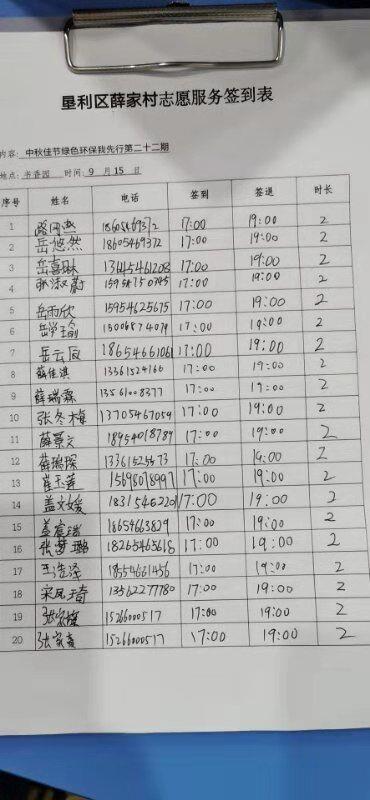 垦利区薛家村志愿服务签到表
内容: 中秋佳节绿色环保我先行第二十二期
地点: 书香园 时间: 9月15日
序号 姓名 电话 签到 签退 时长
1 18605469372 17:00 19:00 2
2 岳悠然 18605469372 17:00 19:00 2
3 岳喜琳 13445461208 17:00 19:00 2
4 张淑蔚 17:00 19:00 2
5 岳雨欣 15954625675 17:00 19:00 2
6 15006874079 17:00 19:00 2
7 岳云凤 18654661061 17:00 19:00 2
8 薛佳淇 13361524166 17:00 19:00 2
9 薛瑞霖 13561008377 17:00 19:00 2
10 张冬梅 13705467059 17:00 19:00 2
11 薛景文 18954018789 17:00 19:00 2
12 薛瑞琛 13361525573 17:00 19:00 2
13 崔玉莲 15698078997 17:00 19:00 2
14 盖文媛 18315462201 17:00 19:00 2
15 盖宸瑞 18654663829 17:00 19:00 2
16 张梦璐 18265465618 17:00 19:00 2
17 王浩泽 18554661456 17:00 19:00 2
18 宋凤琦 13562277780 17:00 19:00 2
19 15266000517 17:00 19:00 2
20 张家睿 15266000517 17:00 19:00 2